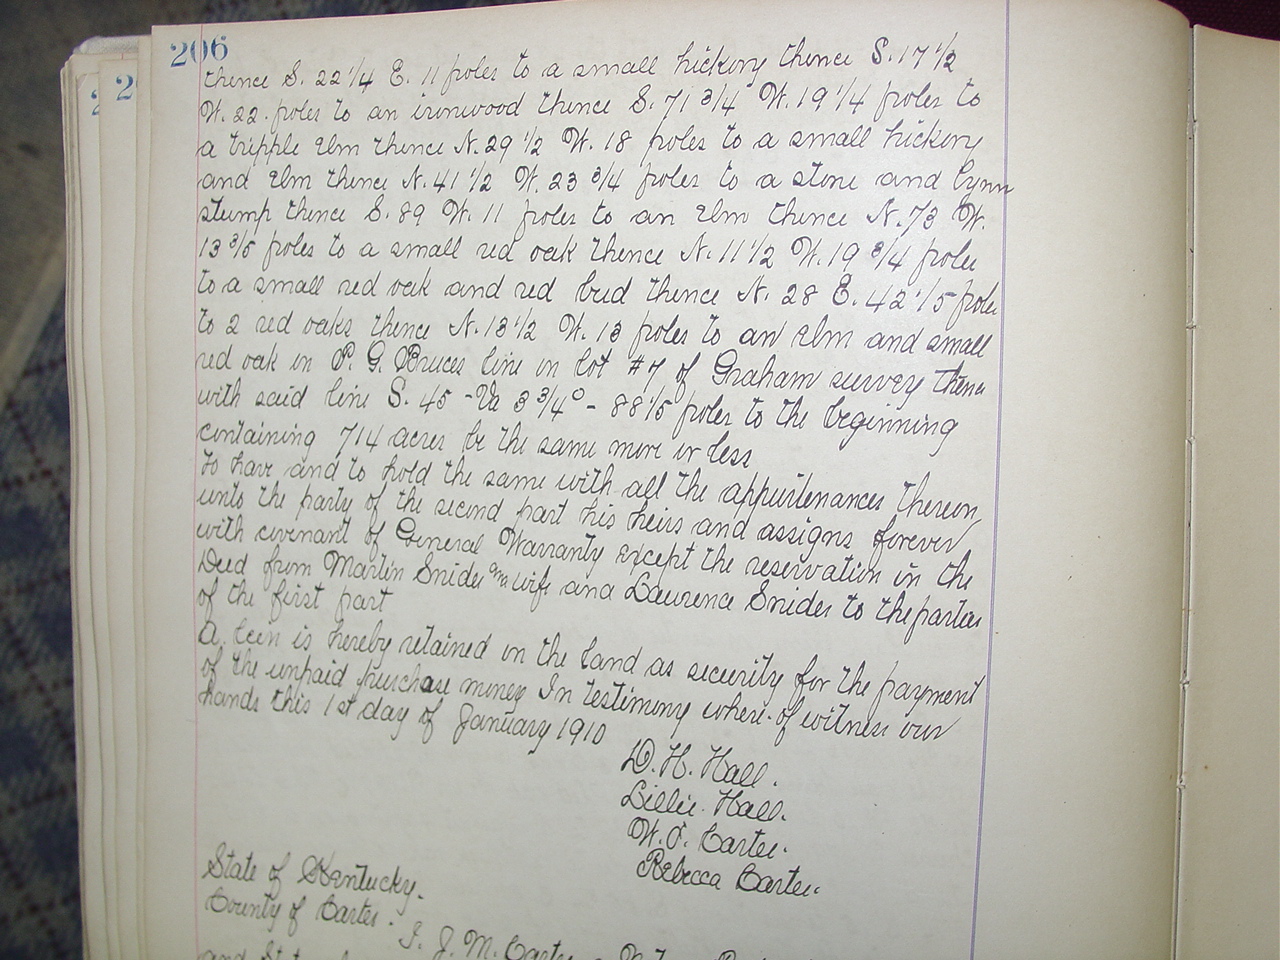 206
thence S. 22 1/4 E. 11 poles to a small hickory thence S. 17 1/2
W. 22. poles to an ironwood thence S. 71 3/4 W. 19 1/4 poles to
a tripple Elm thence N. 29 1/2 W. 18 poles to a small hickory
and Elm thence N. 41 1/2 W. 23 3/4 poles to a stone and Lynn
stump thence S. 89 W. 11 poles to an Elm thence N. 73 W.
13 3/5 poles to a small red oak thence N. 11 1/2 W. 19 3/4 poles
to a small red oak and red bud thence N. 28 E. 42 1/5 poles
to 2 red oaks thence N. 13 1/2 W. 13 poles to an Elm and small
red oak in P. G. Bruces line in lot #7 of Graham survey thence
with said line S. 45 - Va 3 3/4° - 88 1/5 poles to the beginning
containing 714 acres be the same more or less
To have and to hold the same with all the appurtenances thereon
unto the party of the second part his heirs and assigns forever
with covenant of General Warranty Except the reservation in the
Deed from Martin Snider and wife and Lawrence Snider to the parties
of the first part
A leen is hereby retained on the land as security for the payment
of the unpaid purchase money In testimony where-of witness our
hands this 1st day of January 1910
D. H. Hall.
Lillie. Hall.
W. F. Carter.
Rebecca Carter.
State of Kentucky.
County of Carter.
I. J. M. Carter
and
2
2